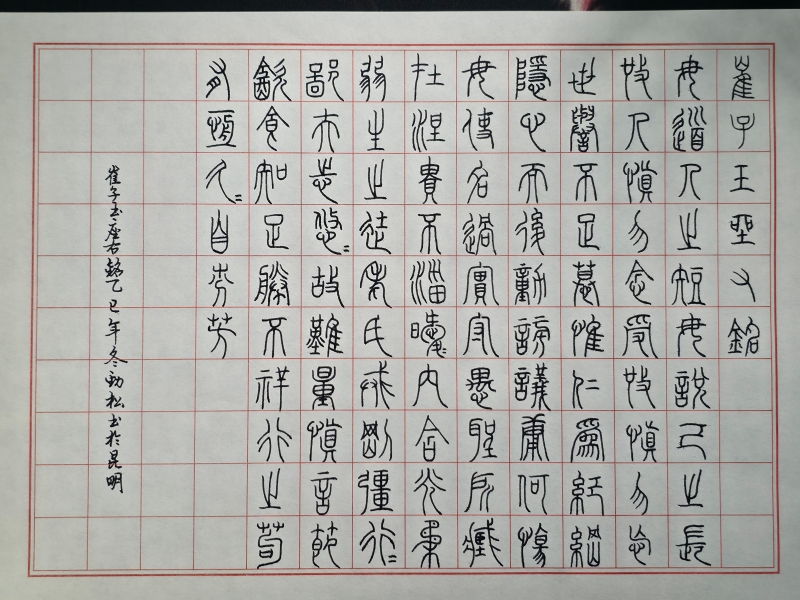 崔子玉座右銘
毋道人之短毋說己之長
施人慎勿念受施慎勿忘
世譽不足慕惟仁為紀綱
隱心而後動謗議庸何傷
毋使名過實守愚聖所臧
在涅貴不淄曖〻內含光柔
弱生之徒老氏戒剛彊行〻
鄙夫志悠〻故難量慎言節
飲食知足勝不祥行之苟
有恆久〻自芬芳
崔子玉座右銘乙巳年冬勁松書於昆明